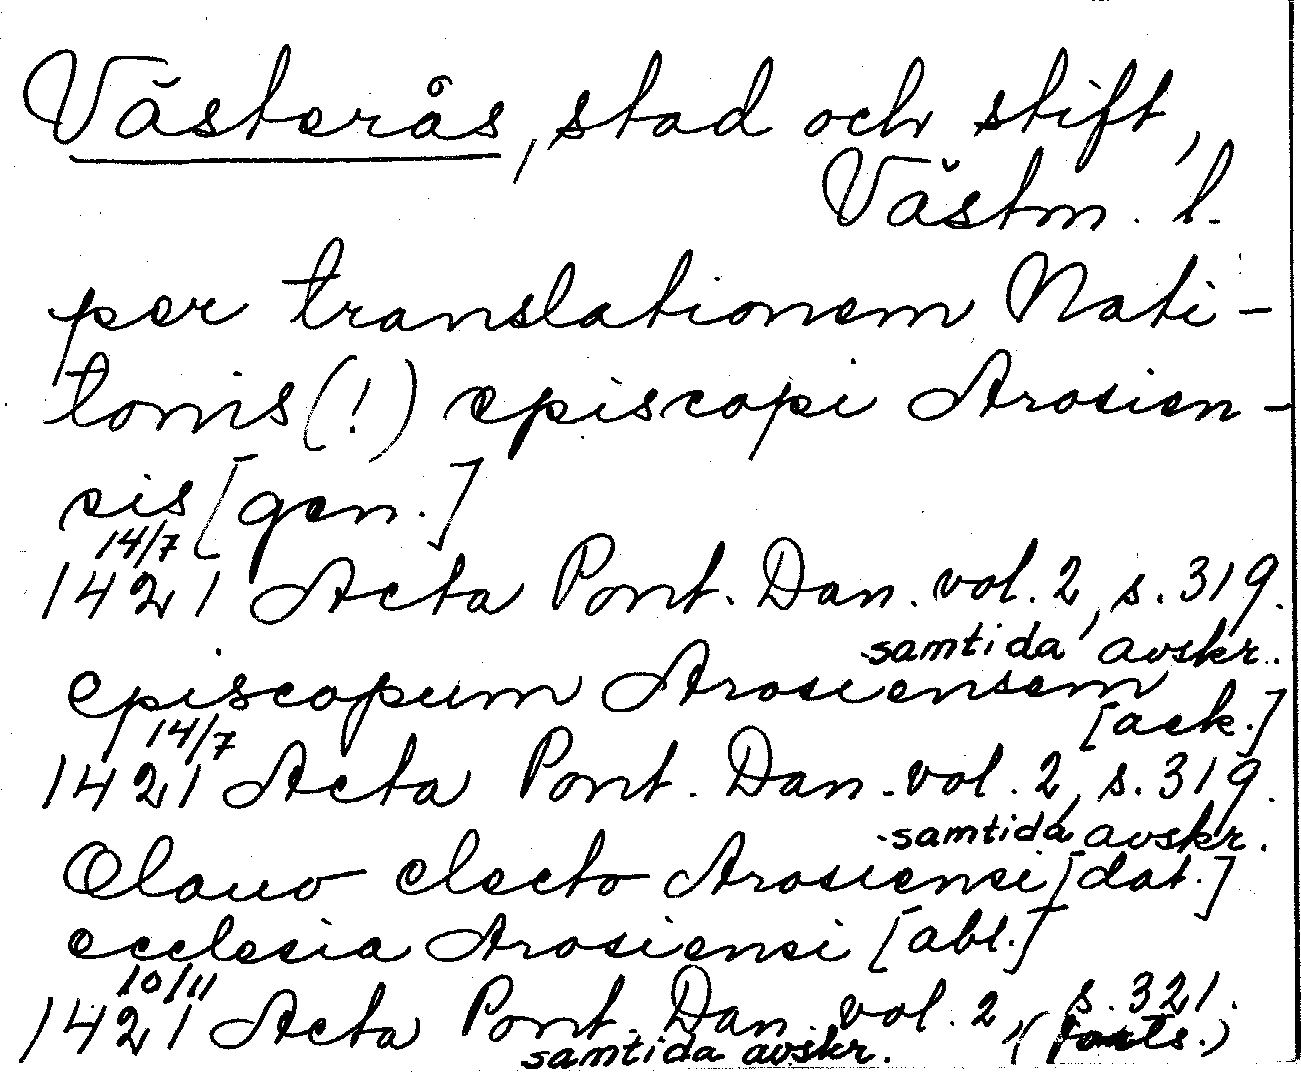 Västerås, stad och stift,
Västm. l.
per translationem Nati-
tonis (!) episcopi Arosien-
sis [gen.]
14/7
1421 Acta Pont. Dan. vol. 2, s. 319.
samtida avskr.
episcopum Arosiensem
[ack.]
14/7
1421 Acta Pont. Dan. vol. 2, s. 319.
samtida avskr.
Olauo electo Arosiensi [dat.]
ecclesia Arosiensi [abl.]
10/11
1421 Acta Pont. Dan. vol. 2, s. 321.
samtida avskr. (forts.)